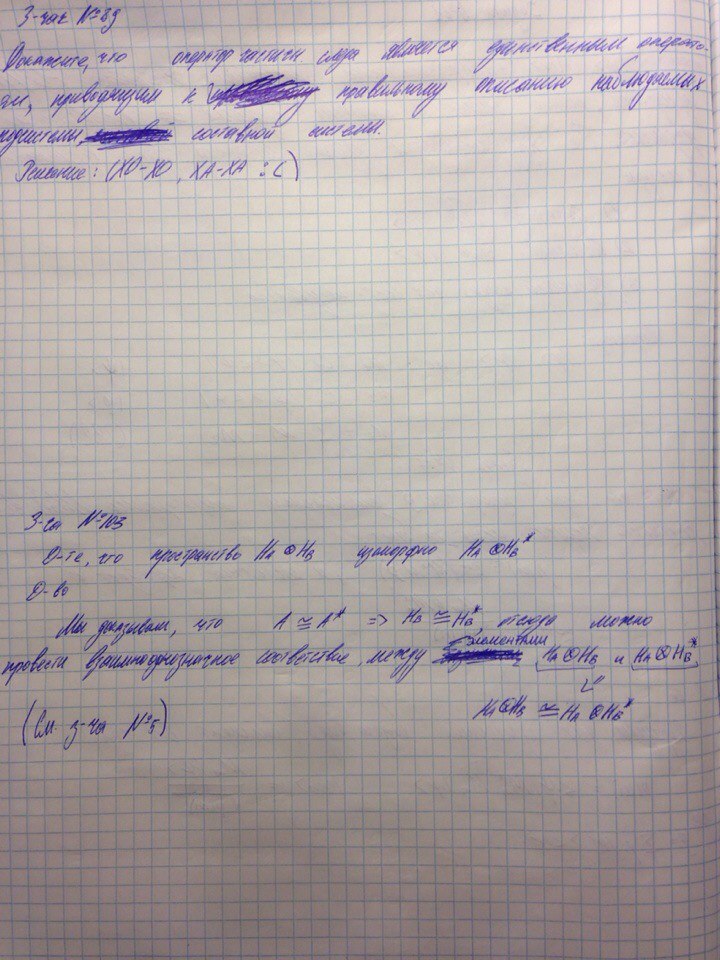 З-чак №89
Докажите, что оператор частичн следа является единственным операто-
ом, приводящим к правильному описанию наблюдаемых
подсистемы, составной системы.
Решение: (ХО-ХО, ХА-ХА :С)
З-ча №103
Д-те, что пространство HA⊗HB изоморфно HA⊗HB*
Д-во
Мы доказывали, что A ≅ A* => HB ≅ HB*, отсюда можно
провести взаимнооднозначное соответствие между элементами HA⊗HB и HA⊗HB*
HA⊗HB ≅ HA⊗HB*
(см. з-ча №5)